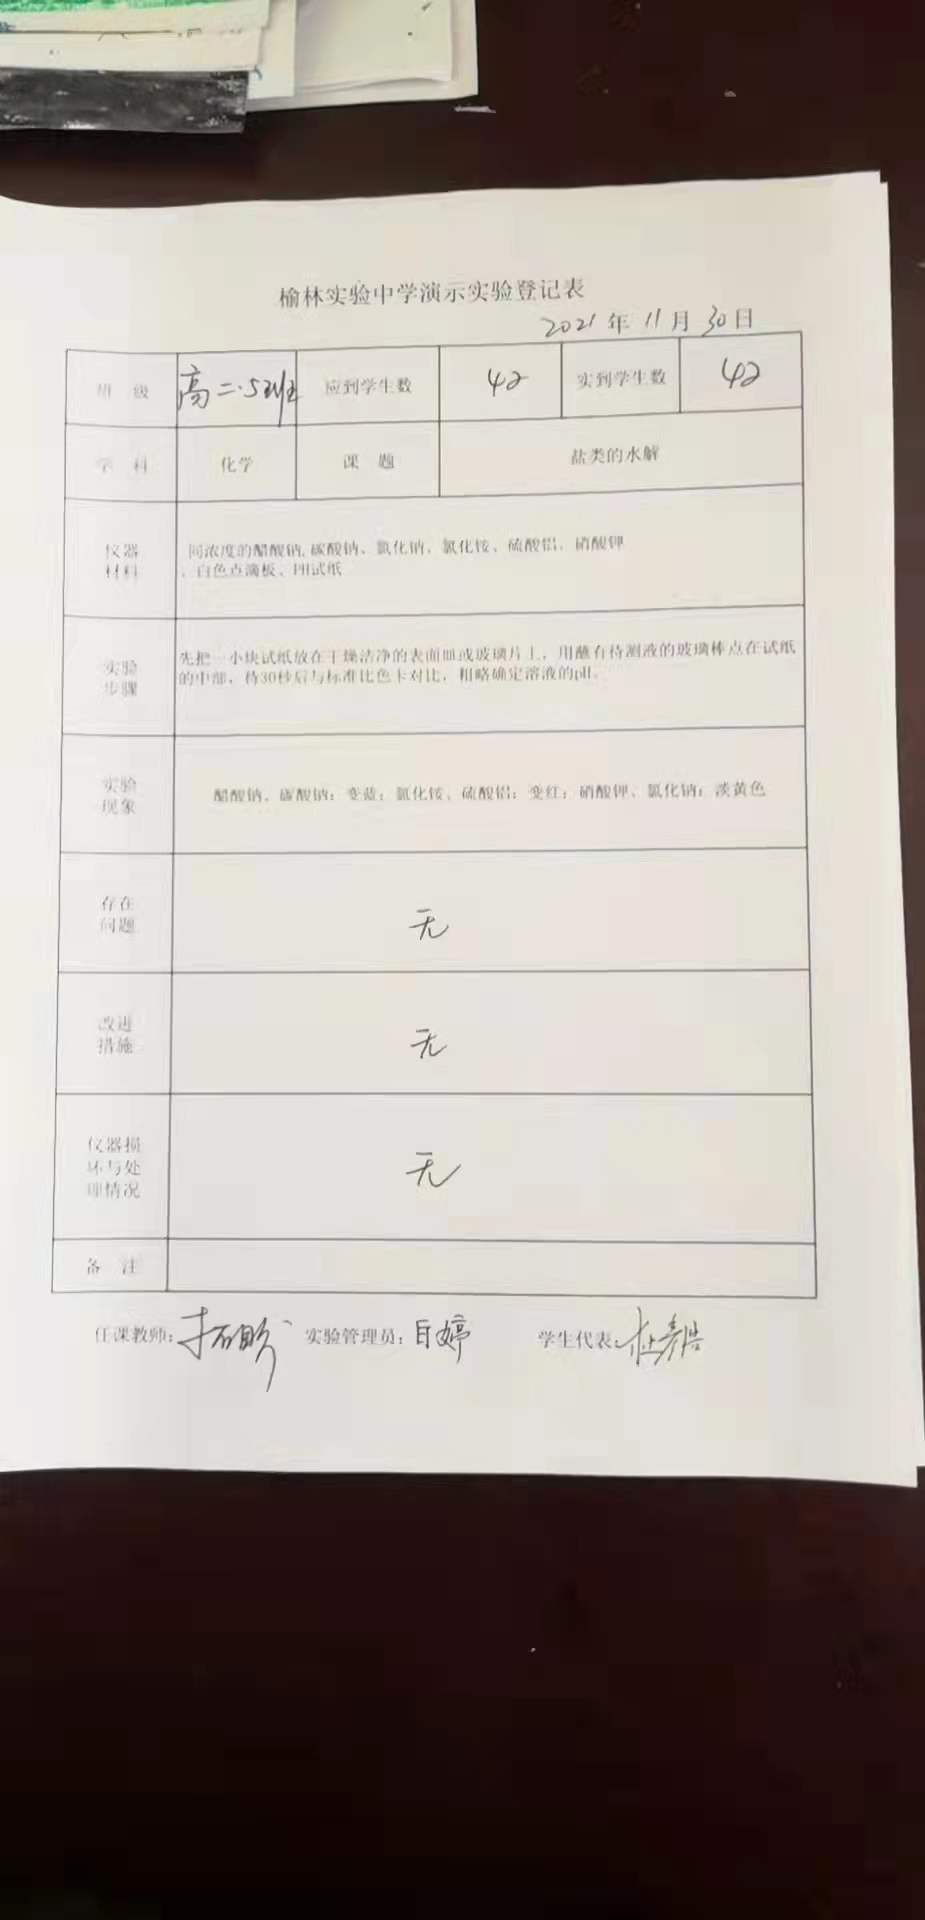 榆林实验中学演示实验登记表
2021年11月30日
班 级 高二·5班 应到学生数 42 实到学生数 42
学 科 化学 课 题 盐类的水解
仪器
材料
同浓度的醋酸钠、碳酸钠、氯化钠、氯化铵、硫酸铝、硝酸钾
、白色点滴板、PH试纸
实验
步骤
先把一小块试纸放在干燥洁净的表面皿或玻璃片上,用蘸有待测液的玻璃棒点在试纸
的中部,待30秒后与标准比色卡对比,粗略确定溶液的pH。
实验
现象
醋酸钠、碳酸钠:变蓝;氯化铵、硫酸铝:变红;硝酸钾、氯化钠:淡黄色
存在
问题
无
改进
措施
无
仪器损
坏与处
理情况
无
备 注
任课教师: 实验管理员: 学生代表: